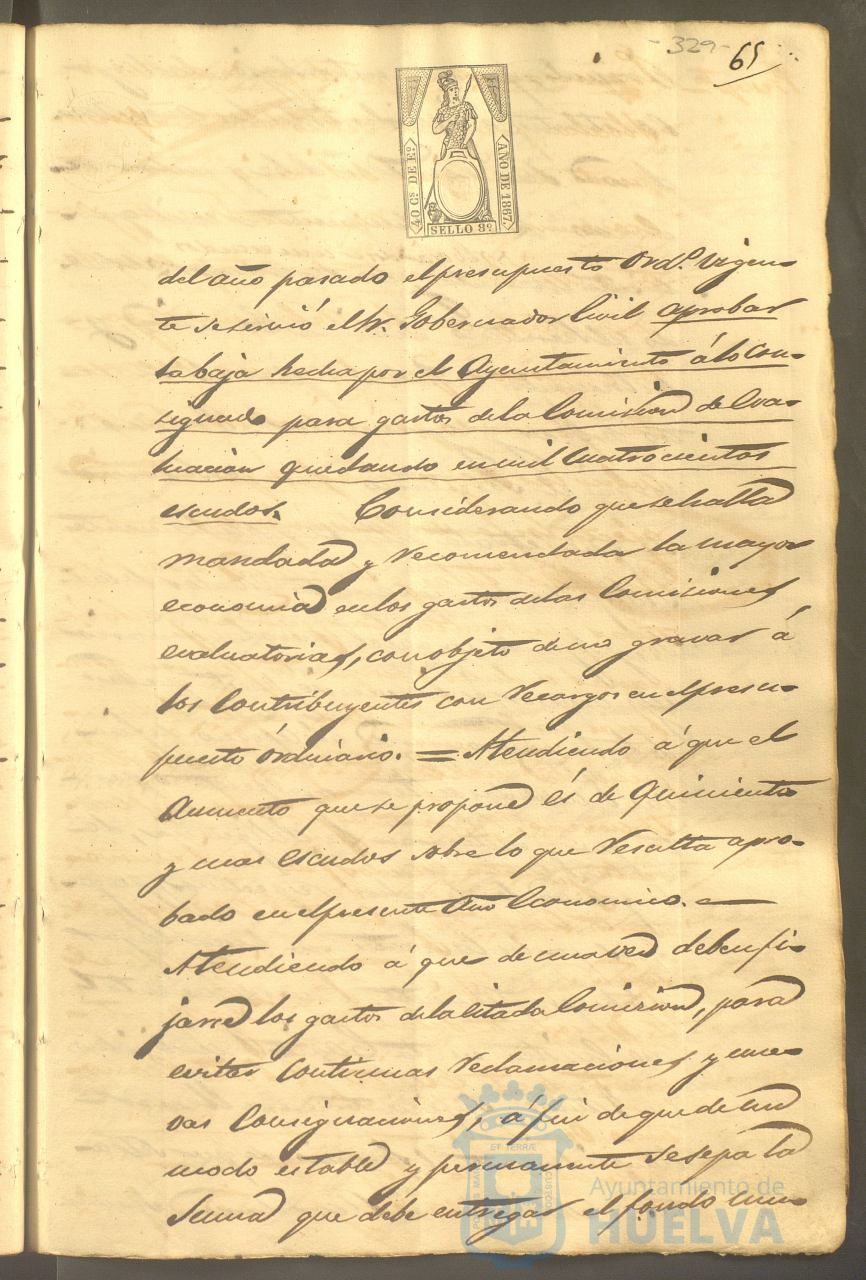 - 329 -
65
40 Cs DE Eo
AÑO DE 1867.
SELLO 8º
del año pasado el presupuesto Ordº. vigen-
te se sirvió el Sr. Gobernador Civil aprobar
la baja hecha por el Ayuntamiento á lo con-
signado para gastos de la Comision de Eva-
luacion quedando en mil cuatrocientos
escudos. Considerando que se halla
mandada y recomendada la mayor
economia en los gastos de las Comisiones
evaluatorias, con objeto de no gravar á
los Contribuyentes con recargos en el presu-
puesto órdinario. = Atendiendo á que el
Aumento que se propone és de Quinientos
y mas escudos sobre lo que resulta apro-
bado en el presente Año Economico. =
Atendiendo á que de una vez deben fi-
jarse los gastos de la citada Comision, para
evitar continuas reclamaciones y nue-
vas Consignaciones, á fin de que de un
modo estable y permanente se sepa la
Suma que debe entregar el fondo mu-
ET TERRÆ
Ayuntamiento de
HUELVA